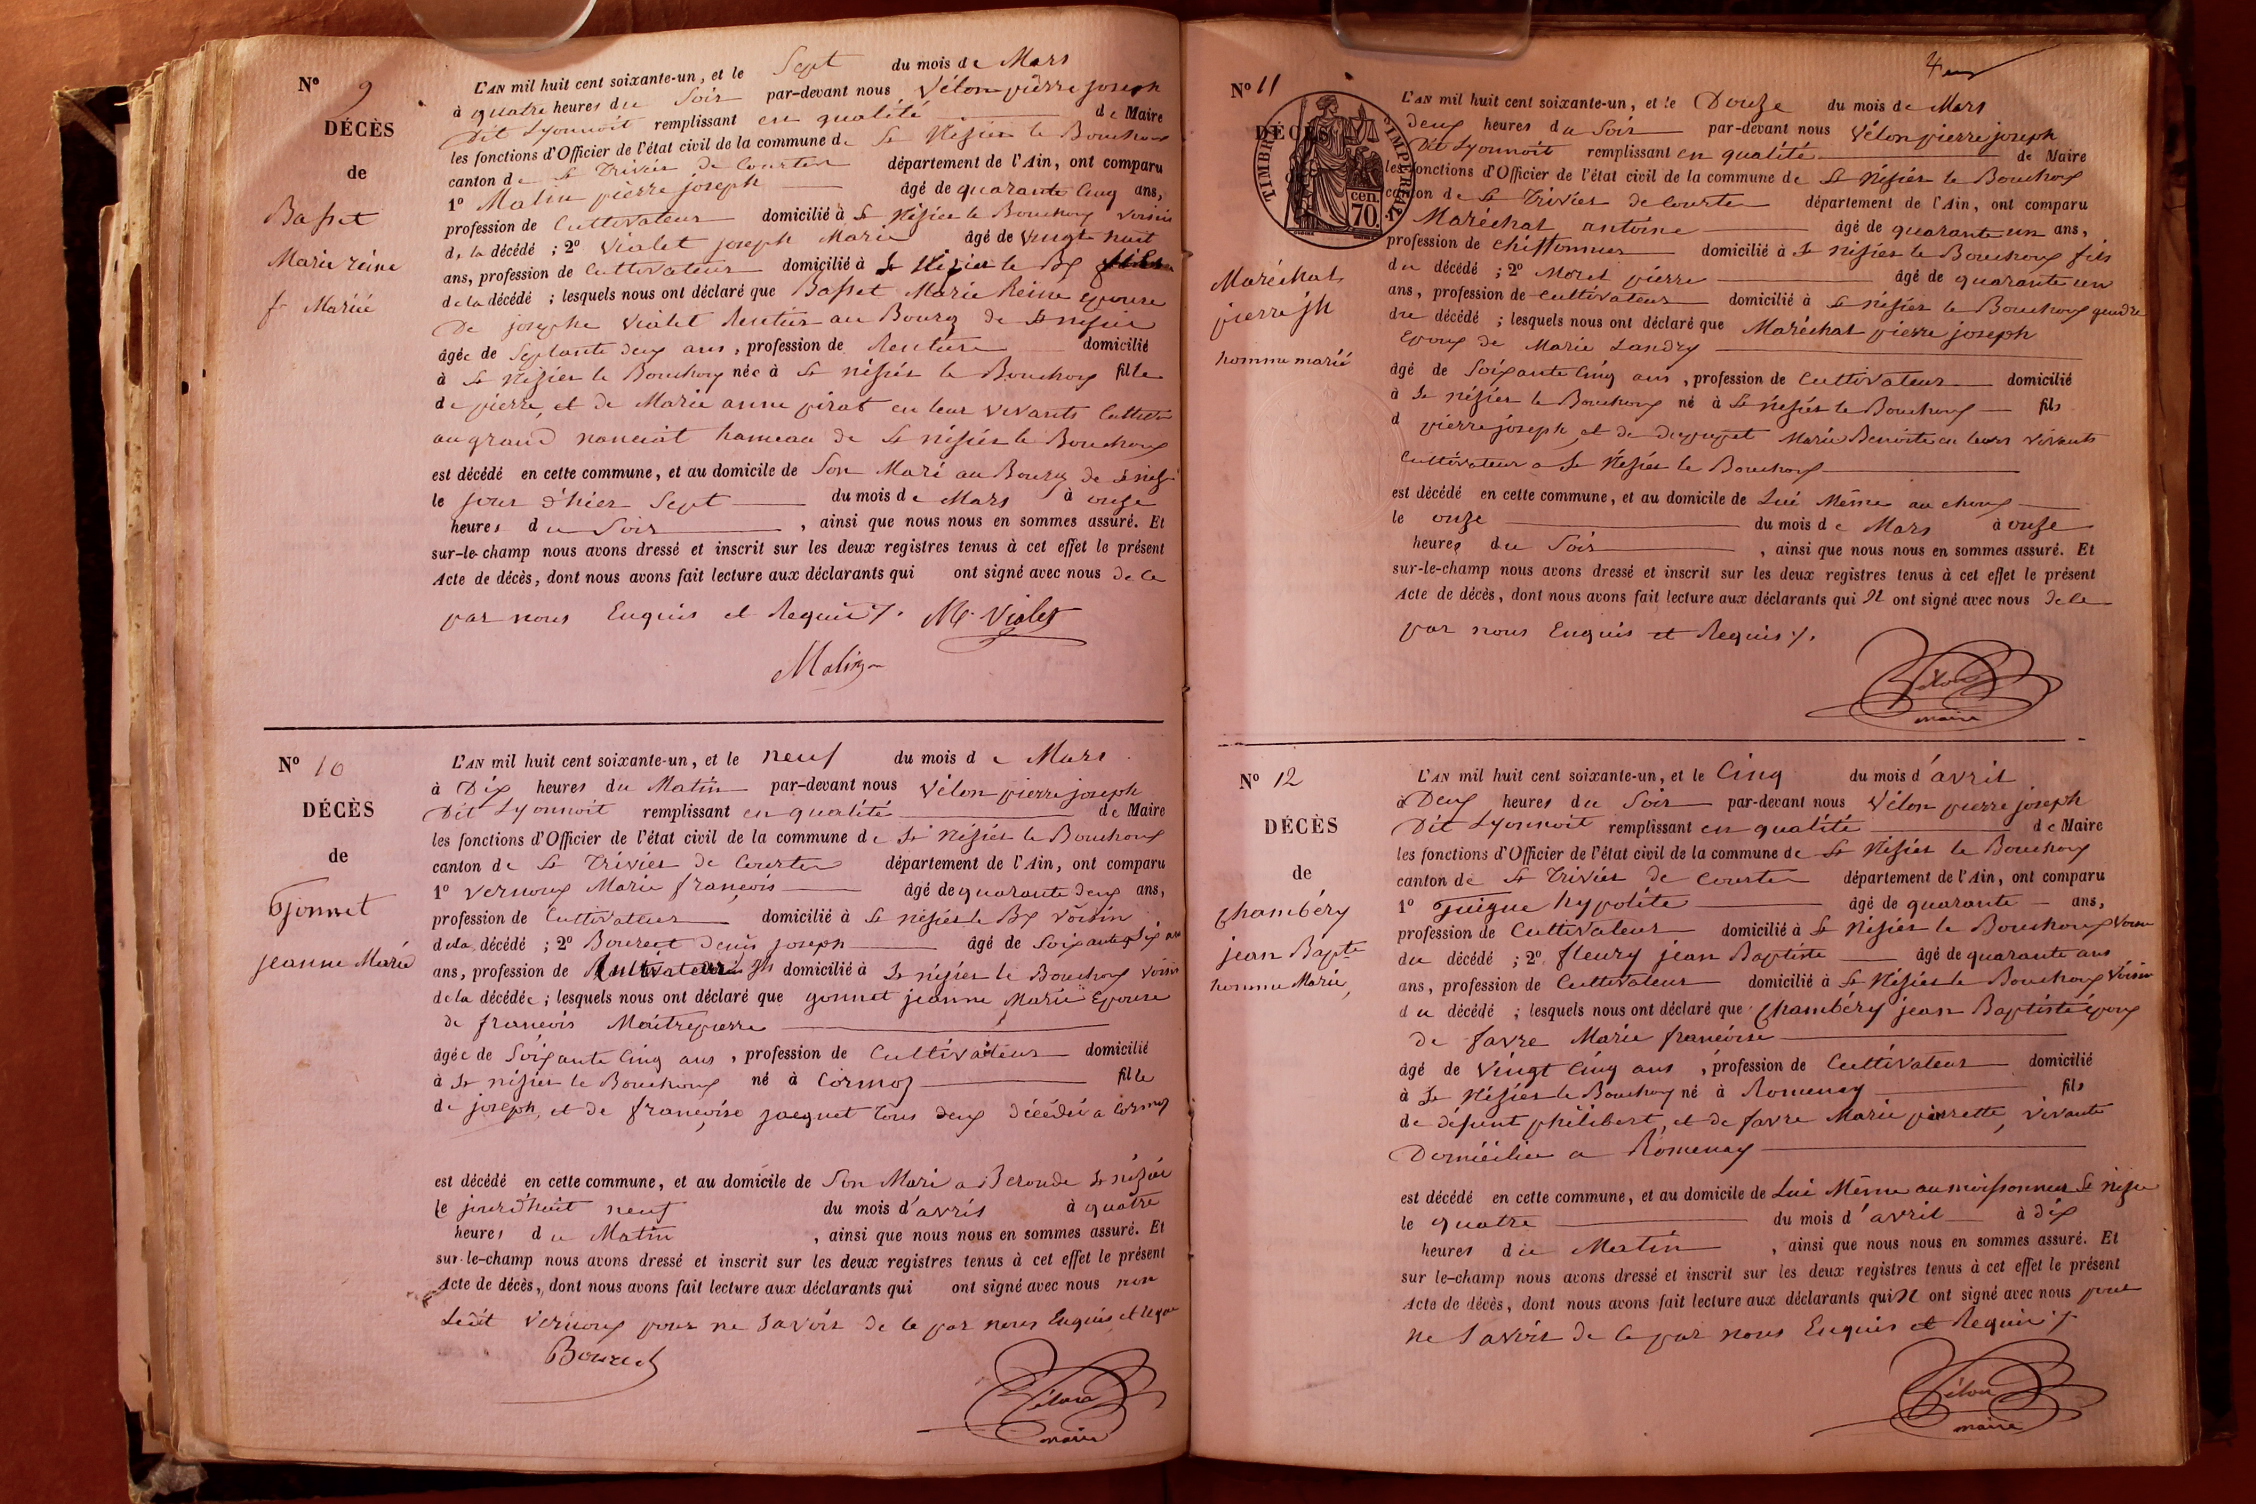 Nº 9
DÉCÈS
de
Basset
Marie reine
f Mariée
L'AN mil huit cent soixante-un, et le Sept du mois de Mars
à quatre heures du Soir par-devant nous Vélon pierre joseph
Dit Lyonnoit remplissant en qualité de Maire
les fonctions d'Officier de l'état civil de la commune de St Nésier le Bouchoux
canton de St Trivier de Courter département de l'Ain, ont comparu
1º Malin pierre joseph âgé de quarante Cinq ans,
profession de Cultivateur domicilié à St Nésier le Bouchoux voisin
de la décédé ; 2º Vialet joseph Marie âgé de vingt huit
ans, profession de Cultivateur domicilié à St Nésier le Bx
de la décédé ; lesquels nous ont déclaré que Basset Marie Reine Epouse
De josephe Vialet Rentier au Bourg de St nésier
âgée de Septante deux ans, profession de Rentière domicilié
à St Nésier le Bouchoux née à St nésier le Bouchoux fille
de pierre, et de Marie anne pirat en leur vivants
au grand nanciat hameau de St nésier le Bouchoux
est décédé en cette commune, et au domicile de Son Mari au Bourg de
le jour d'hier Sept du mois de Mars à onze
heures du Soir , ainsi que nous nous en sommes assuré. Et
sur-le-champ nous avons dressé et inscrit sur les deux registres tenus à cet effet le présent
Acte de décès, dont nous avons fait lecture aux déclarants qui ont signé avec nous de ce
par nous Enquis et Requis ⁒ M. Vialet
Malin
Nº 10
DÉCÈS
de
Gonnet
jeanne Marie
L'AN mil huit cent soixante-un, et le neuf du mois de Mars
à Dix heures du Matin par-devant nous Vélon pierre joseph
Dit Lyonnoit remplissant en qualité de Maire
les fonctions d'Officier de l'état civil de la commune de St Nésier le Bouchoux
canton de St Trivier de Courter département de l'Ain, ont comparu
1º Vernoux Marie françois âgé de quarante deux ans,
profession de Cultivateur domicilié à St nésier le Bx voisin
de la décédé ; 2º Bourcet Denis joseph âgé de Soixante Dix ans
ans, profession de Cultivateur domicilié à St nésier le Bouchoux voisin
de la décédée ; lesquels nous ont déclaré que gonnet jeanne Marie Epouse
de francois Maitrepierre
âgée de Soixante Cinq ans, profession de Cultivateur domicilié
à St nésier le Bouchoux né à Cormoz fille
de joseph, et de françoise jacquet tous deux décédés a Cormoz
est décédé en cette commune, et au domicile de Son Mari a Beronde St nésier
le jourd'huit neuf du mois d'avril à quatre
heures du Matin , ainsi que nous nous en sommes assuré. Et
sur-le-champ nous avons dressé et inscrit sur les deux registres tenus à cet effet le présent
Acte de décès, dont nous avons fait lecture aux déclarants qui ont signé avec nous non
Ledit Vernoux pour ne savoir de ce par nous Enquis et
Bourcet
Vélon
maire
Nº 11
DÉCÈS
TIMBRE IMPERIAL
cen.
70.
Maréchal
pierre jh
homme marié
L'AN mil huit cent soixante-un, et le Douze du mois de Mars
deux heures du Soir par-devant nous Vélon pierre joseph
Dit Lyonnoit remplissant en qualité de Maire
les fonctions d'Officier de l'état civil de la commune de St Nésier le Bouchoux
canton de St Trivier de Courter département de l'Ain, ont comparu
Maréchal antoine âgé de quarante un ans,
profession de chiffonnier domicilié à St nésier le Bouchoux fils
du décédé ; 2º Moret pierre âgé de quarante un
ans, profession de Cultivateur domicilié à St nésier le Bouchoux gendre
du décédé ; lesquels nous ont déclaré que Maréchal pierre joseph
Epoux de Marie Landry
âgé de Soixante Cinq ans, profession de Cultivateur domicilié
à St nésier le Bouchoux né à St Nésier le Bouchoux fils
d pierre joseph, et de dupuget Marie Benoite en leurs vivants
Cultivateur a St Nésier le Bouchoux
est décédé en cette commune, et au domicile de Lui Même au choux
le onze du mois de Mars à onze
heures du Soir , ainsi que nous nous en sommes assuré. Et
sur-le-champ nous avons dressé et inscrit sur les deux registres tenus à cet effet le présent
Acte de décès, dont nous avons fait lecture aux déclarants qui N ont signé avec nous de ce
par nous Enquis et Requis ⁒
Vélon
maire
Nº 12
DÉCÈS
de
Chambéry
jean Bapte
homme Marié
L'AN mil huit cent soixante-un, et le Cinq du mois d'avril
à Deux heures du Soir par-devant nous Vélon pierre joseph
Dit Lyonnoit remplissant en qualité de Maire
les fonctions d'Officier de l'état civil de la commune de St Nésier le Bouchoux
canton de St Trivier de Courter département de l'Ain, ont comparu
1º Guigue hypolite âgé de quarante ans,
profession de Cultivateur domicilié à St Nésier le Bouchoux voisin
du décédé ; 2º fleury jean Baptiste âgé de quarante ans
ans, profession de Cultivateur domicilié à St Nésier le Bouchoux Voisin
du décédé ; lesquels nous ont déclaré que Chambéry jean Baptiste époux
de favre Marie francoise
âgé de vingt Cinq ans, profession de Cultivateur domicilié
à St Nésier le Bouchoux né à Romenay fils
de défunt philibert, et de favre Marie pierrette, vivante
Domiciliée a Romenay
est décédé en cette commune, et au domicile de Lui Même au moissonneur St
le quatre du mois d'avril à dix
heures du Matin , ainsi que nous nous en sommes assuré. Et
sur le-champ nous avons dressé et inscrit sur les deux registres tenus à cet effet le présent
Acte de décès, dont nous avons fait lecture aux déclarants qui N ont signé avec nous pour
ne Savoir de ce par nous Enquis et Requis ⁒
Vélon
maire